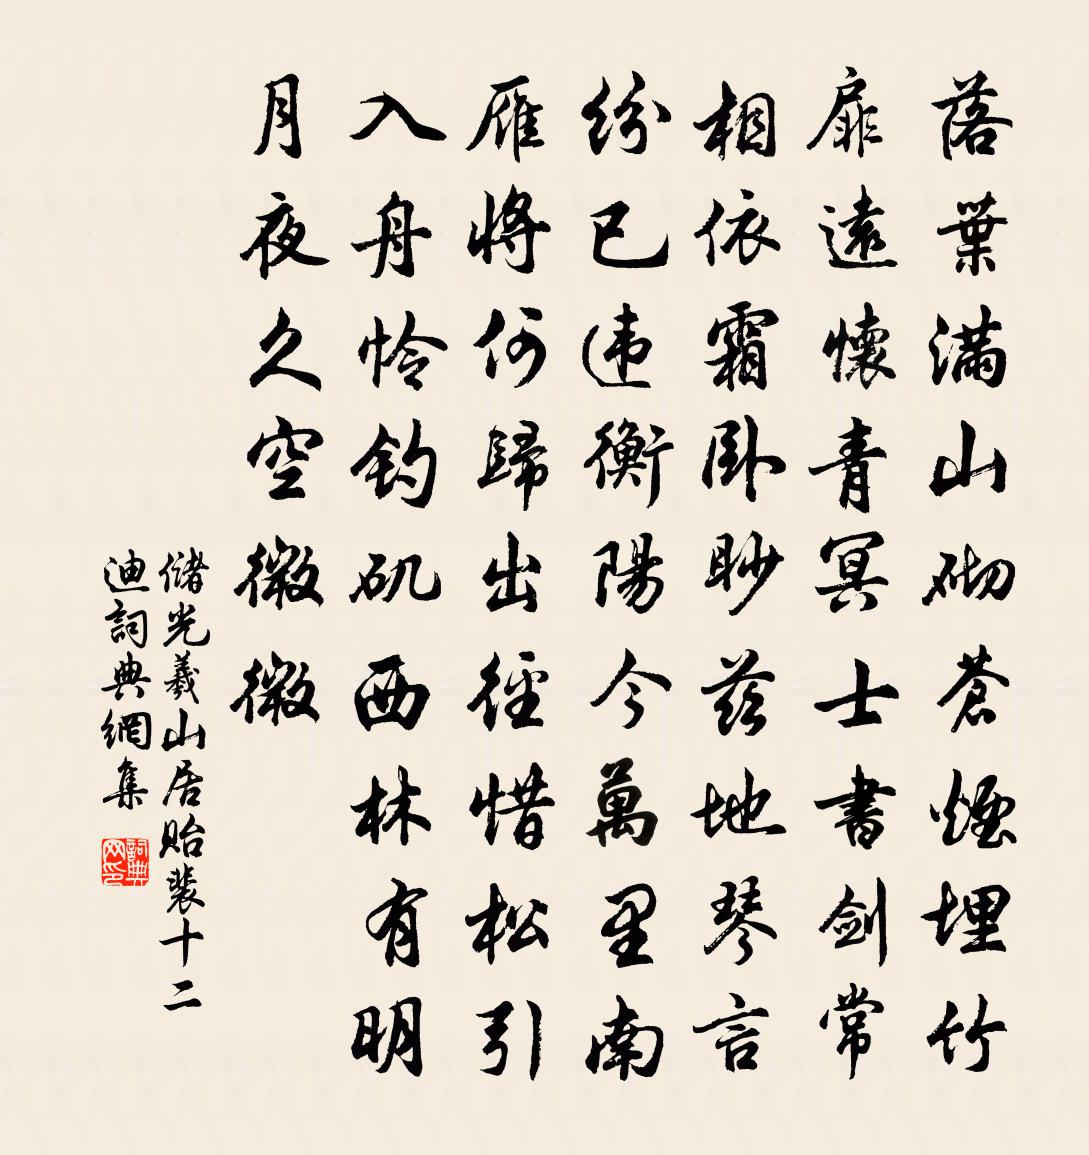 落葉滿山砌蒼煙埋竹
扉遠懷青冥士書劍常
相依霜臥眇茲地琴言
紛已违衡陽今萬里南
雁將何歸出徑惜松引
入舟怜钓矶西林有明
月夜久空微微
儲光羲山居貽裴十二
迪詞典網集
詞典
网印